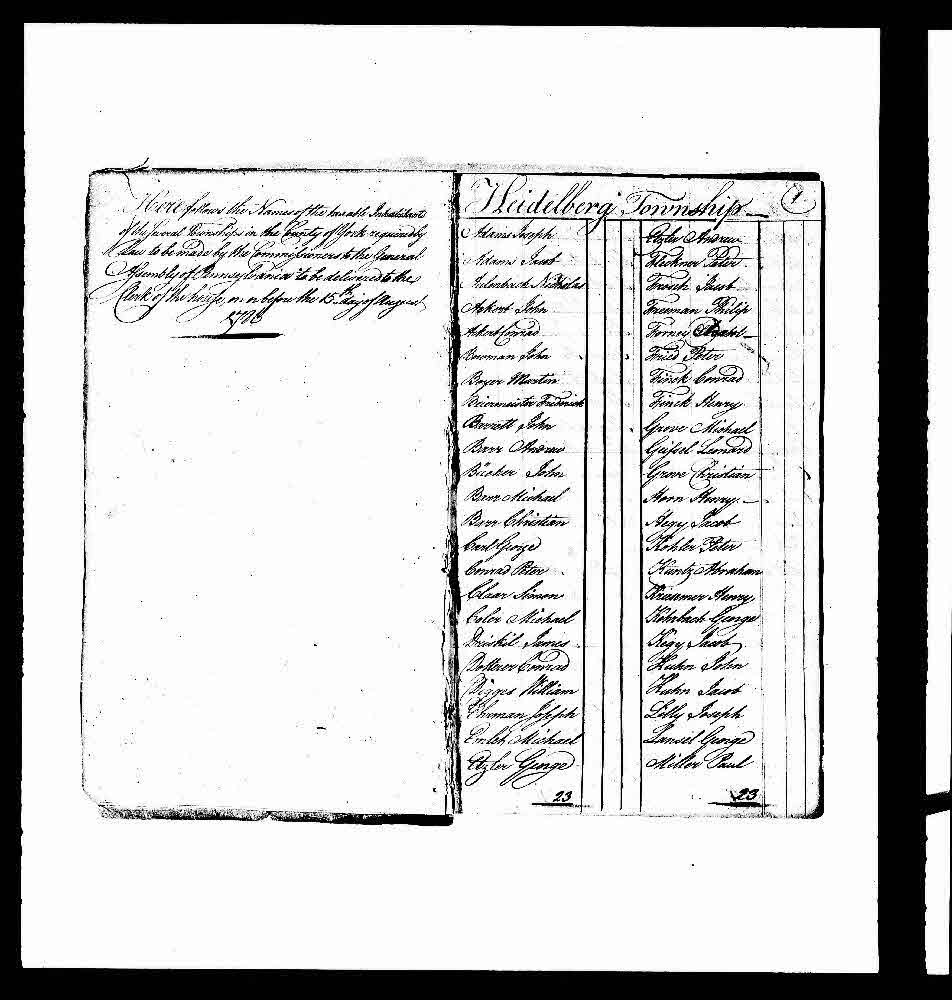 Here follows the Names of the taxable Inhabitants
of the several Townships in the County of York required by
Law to be made by the Commissioners to the General
Assembly of Pennsylvania to be delivered to the
Clerk of the house on or before the 15th day of August
1778
Heidelberg Township
1
Adams Joseph
Adams Jacob
Nicholas
Ackert John
Ackert Conrad
Bowman John
Boyer Martin
Beiermeister Frederick
Everett John
Barr Andrew
Bücher John
Barr Michael
Barr Christian
Carl George
Conrad Peter
Claar Simon
Color Michael
Driskil James
Dotterer Conrad
Digges William
Ehrman Joseph
Emlet Michael
Etzler George
23
Etzler Andrew
Fleshner Peter
Frock Jacob
Freeman Philip
Forney
Fried Peter
Finck Conrad
Finck Henry
Grove Michael
Geissel Leonard
Grove Christian
Horn Henry
Hegy Jacob
Kohler Peter
Kuntz Abraham
Henry
Kehrbach George
Kegy Jacob
Kuhn John
Kuhn Jacob
Lilly Joseph
Lansel George
Miller Paul
23